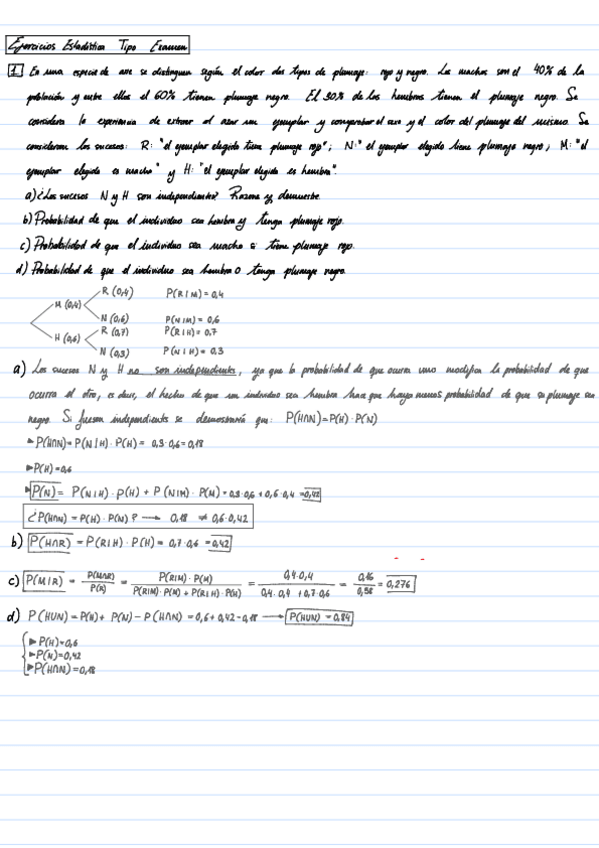 Ejercicios Estadística Tipo Examen
1 En una especie de ave se distinguen según el color dos tipos de plumaje: rojo y negro. Los machos son el 40% de la
población y entre ellos el 60% tienen plumaje negro. El 30% de las hembras tienen el plumaje negro. Se
considera la experiencia de extraer al azar un ejemplar y comprobar el sexo y el color del plumaje del mismo. Se
consideran los sucesos: R: "el ejemplar elegido tiene plumaje rojo"; N: "el ejemplar elegido tiene plumaje negro; M: "el
ejemplar elegido es macho" y H: "el ejemplar elegido es hembra".
a) ¿Los sucesos N y H son independientes? Razona y demuestre.
b) Probabilidad de que el individuo sea hembra y tenga plumaje rojo.
c) Probabilidad de que el individuo sea macho si tiene plumaje rojo.
d) Probabilidad de que el individuo sea hembra o tenga plumaje negro.
R (0,4) P(R|M) = 0,4
M (0,4)
N (0,6) P(N|M) = 0,6
R (0,7) P(R|H) = 0,7
H (0,6)
N (0,3) P(N|H) = 0,3
a) Los sucesos N y H no son independients, ya que la probabilidad de que ocurra uno modifica la probabilidad de que
ocurra el otro, es decir, el hecho de que un individuo sea hembra hace que haya menos probabilidad de que su plumaje sea
negro. Si fuesen independients se demostraría que: P(H∩N)=P(H)·P(N)
P(H∩N)= P(N|H)·P(H)= 0,3·0,6=0,18
P(H)=0,6
P(N)= P(N|H)·P(H) + P(N|M)·P(M)=0,3·0,6 + 0,6·0,4 =0,42
¿P(H∩N) = P(H)·P(N)? → 0,18 ≠ 0,6·0,42
b) P(H∩R) = P(R|H)·P(H)= 0,7·0,6 =0,42
c) P(M|R) = P(M∩R)/P(R) = P(R|M)·P(M)/P(R|M)·P(M)+P(R|H)·P(H) = 0,4·0,4/0,4·0,4+0,7·0,6 = 0,16/0,58 = 0,276
d) P(HUN)=P(H)+P(N)-P(H∩N)=0,6+0,42-0,18 → P(HUN)=0,84
P(H)=0,6
P(N)=0,42
P(H∩N)=0,18